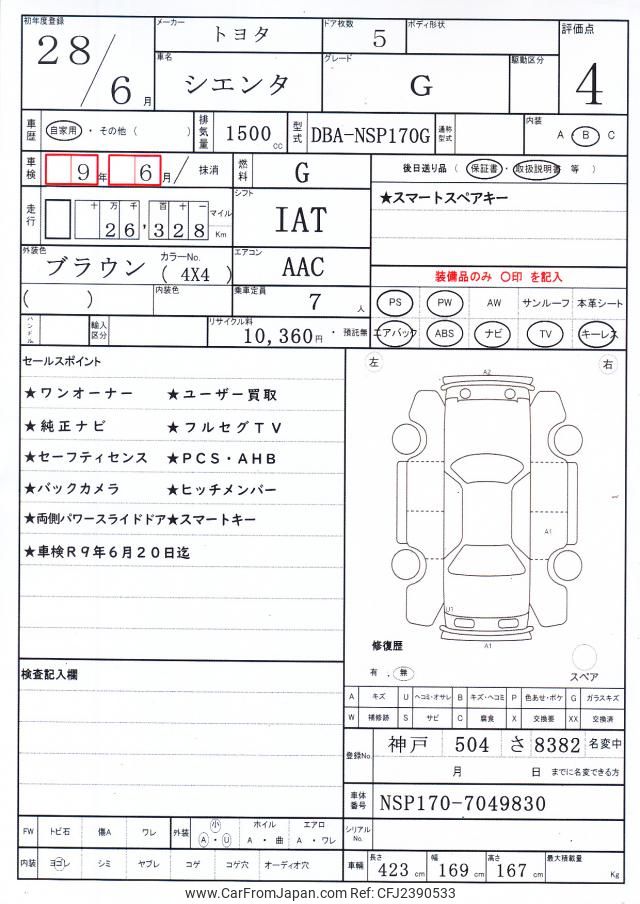 初年度登録 28/6月
メーカー トヨタ
ドア枚数 5
ボディ形状
評価点 4
車名 シエンタ
グレード G
駆動区分
車歴 自家用・その他（ ）
排気量 1500cc
型式 DBA-NSP170G
通称型式
内装 A B C
車検 9年 6月/ 抹消
燃料 G
後日送り品（保証書・取扱説明書 等）
走行 十万千百十一 26,328 マイル Km
シフト IAT
★スマートスペアキー
外装色 ブラウン
カラーNo. (4X4)
エアコン AAC
装備品のみ 〇印 を記入
（ ）
内装色
乗車定員 7人
PS PW AW サンルーフ 本革シート
ハンドル
輸入区分
リサイクル料 10,360円・預託無
エアバック ABS ナビ TV キーレス
セールスポイント
★ワンオーナー ★ユーザー買取
★純正ナビ ★フルセグTV
★セーフティセンス ★PCS・AHB
★バックカメラ ★ヒッチメンバー
★両側パワースライドドア★スマートキー
★車検R9年6月20日迄
左 右
A2
A1
U1
A1
修復歴
有・無
スペア
検査記入欄
A キズ U ヘコミ・オサレ B キズ・ヘコミ P 色あせ・ボケ G ガラスキズ
W 補修跡 S サビ C 腐食 X 交換要 XX 交換済
登録No. 神戸 504 さ 8382 名変中
月 日 までに名変できる方
車体番号 NSP170-7049830
FW トビ石 傷A ワレ
外装 小 A・U
ホイル A・曲
エアロ A・ワレ
シリアルNo.
内装 ヨゴレ シミ ヤブレ コゲ コゲ穴 オーディオ穴
車輌 長さ 423cm 幅 169cm 高さ 167cm 最大積載量 Kg
www.CarFromJapan.com Ref: CFJ2390533